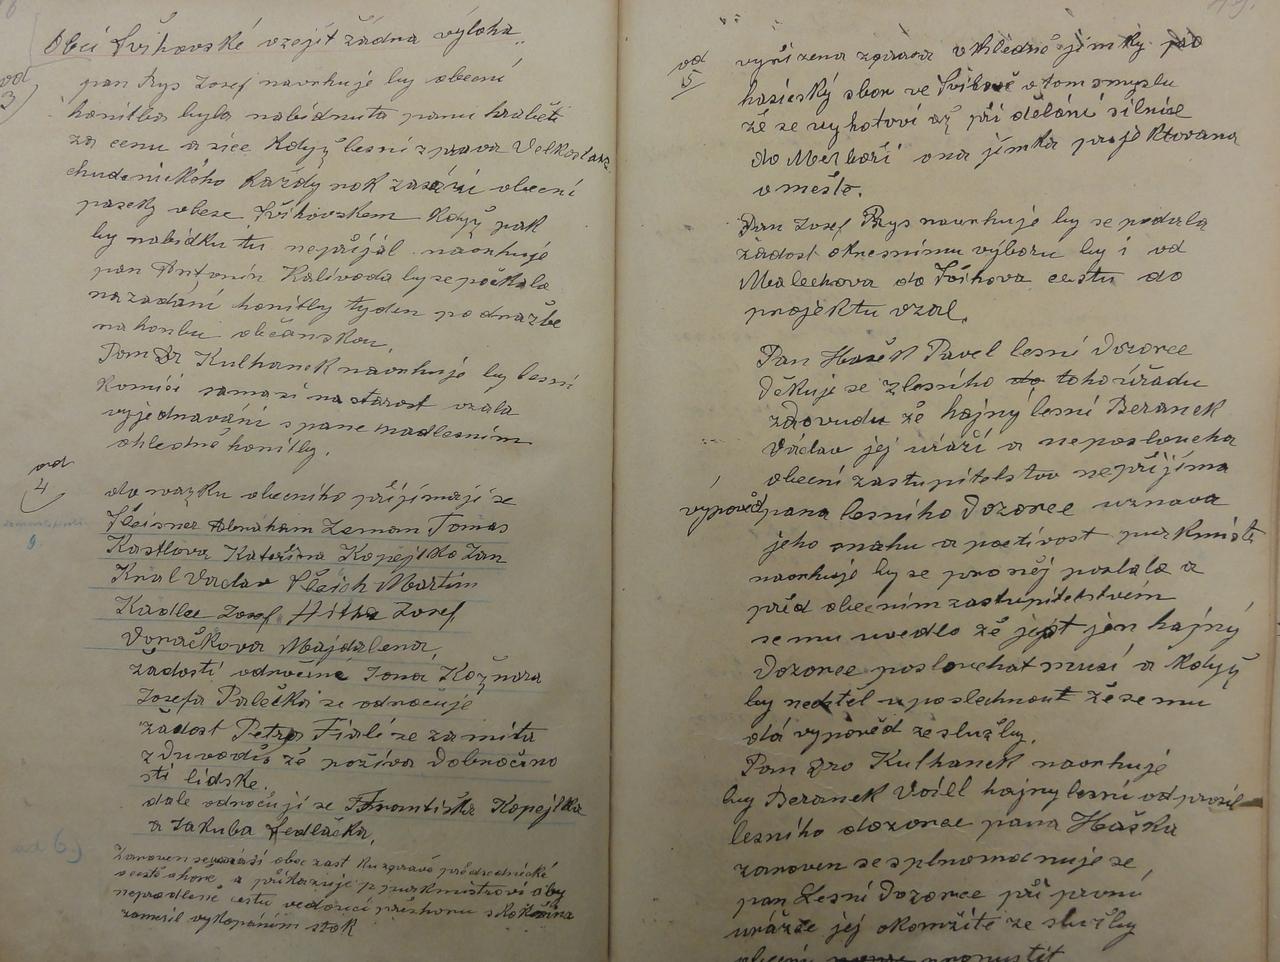 Obcí Švihovské vzejít žádna výloha.
od
3)
pan Rys Josef navrhuje by obecní
honitba byla nabídnuta panu hraběti
za cenu a sice když lesní zprava Velkostatk.
chudenického každý rok zasází obecní
paseky obese Švihovskem když pak
by nabídku tu nepřijál navrhuje
pan Antonín Kalivoda by se počkalo
na zadání honitby tyden po dražbe
na honbu občanskou.
Pan Dr Kulhanek navrhuje by lesní
komisi sama si na starost vzala
vyjednavání s pane nadlesním
ohledně honitby.
od
4
do svazku obecního přijímají se
Fleisner Abraham Zeman Tomas
Kastlova Kateřina Kopejtko Jan
Kral Vaclav Fleich Martin
Kadlec Josef, Hitka Josef,
Voračkova Majdalena,
žádosti odročené Jana Kožnara
Josefa Palečka se odročuje
žádost Petra Fialí se zamita
z duvodů že požíva Dobročino
sti lidske.
dale odročují se Františka Kopejtka
a Jakuba Sedláčka,
ad 6)
Zanoven se usnáší obec zast ku zpravě
a přikazuje p purkmistrovi aby
neprodleně cestu vedoucí
zamezil vykopáním stok
od
5
vyřízena zprava vzhledně jímky pro
hasičský sbor ve Švihově v tom smyslu
že se vyhotoví až při dělání silnice
do Merboří ona jímka projektovana
v mešte.
Pan Josef Rys navrhuje by se podala
žádost okresnímu výboru by i od
Malechova do Švihova cestu do
projektu vzal.
Pan Hašek Pavel lesní Dozorce
Děkuje se z lesního do toho úřadu
z dovudu že hajný lesní Beranek
Václav jej uráží a neposloucha
obecní zastupitelstvo nepřijíma
výpověď pana lesního Dozorce uznava
jeho snahu a poctivost purkmistr
navrhuje by se pro něj poslalo a
před obecním zastupitelstvem
se mu uvedlo že jest jen hajný
Dozorce poslouchat musí a když
by nechtěl uposlechnout že se mu
dá vypověd ze služby.
Pan Dro Kulhanek navrhujé
by Beranek hajny lesní odprosil
lesního dozorce pana Haška
zanoven se splnomocnuje se,
pan Lesní Dozorce při první
urážce jej okomžite ze služby
obecní propustit